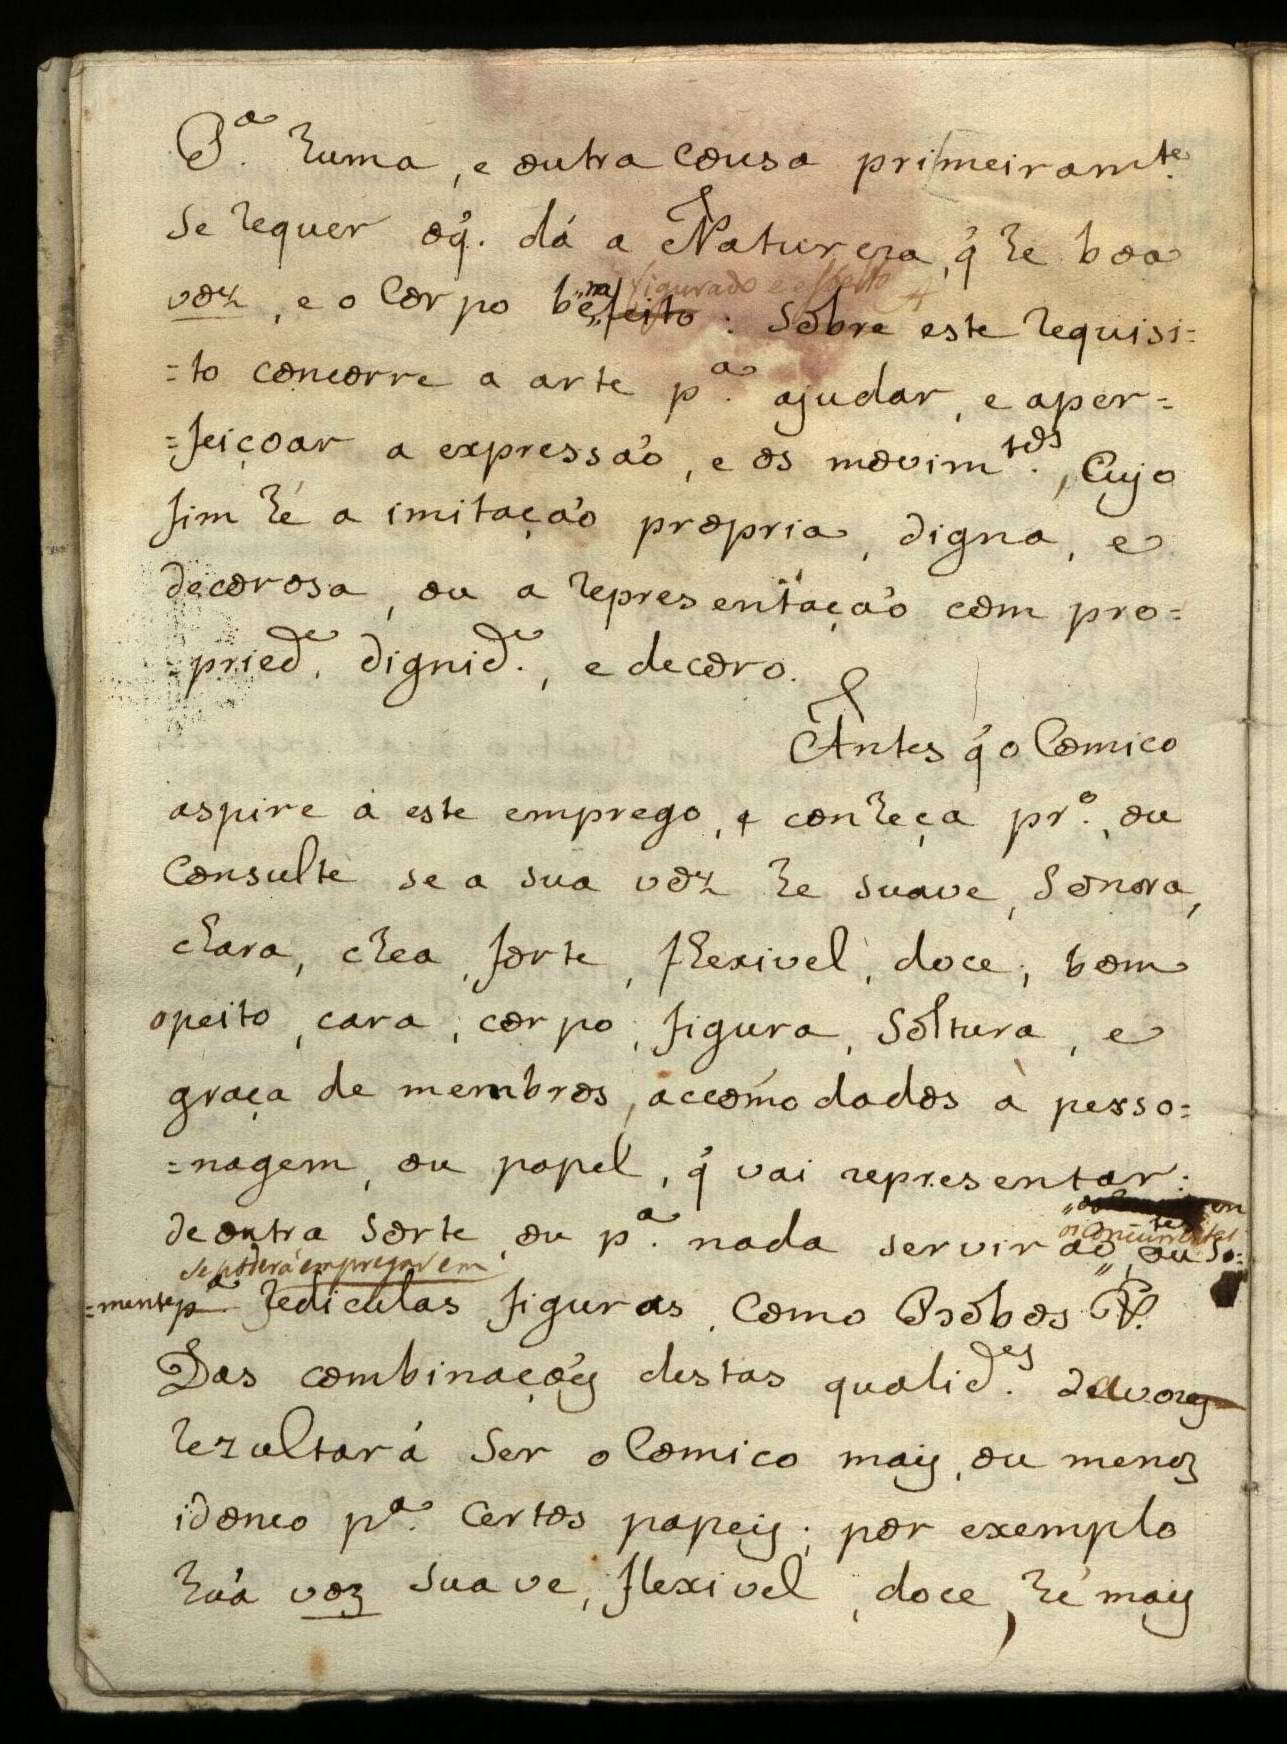 P.ª huma, e outra cousa primeiram.te
se requer oq̃. dá a Natureza, q̃ he boa
voz, e o Corpo bem figurado e esbelto feito: Sobre este requisi=
=to concorre a arte p.ª ajudar, e aper=
=feiçoar a expressaõ, e os movim.tos, Cujo
fim hé a imitaçaõ propria, digna, e
decorosa, ou a representaçaõ com pro=
=pried.e, dignid.e, e decoro.
Antes q̃ o Comico
aspire á este emprego, conheça pr.º, ou
Consulte se a sua voz he suave, Sonora,
clara, chea, forte, flexivel, doce; bom
opeito, cara, corpo, figura, Soltura, e
graça de membros, accomodados à perso=
=nagem, ou papel, q̃ vai representar:
de outra Sorte, ou p.ª nada serviraõ, ou So=
se poderá empregar em
=mente p.ª rediculas figuras, Como Bobos &.
Das combinaçoẽs destas qualid.es
rezultará Ser o Comico mais, ou menos
idoneo p.ª Certos papeis; por exemplo
huã voz suave, flexivel, doce, hé mais